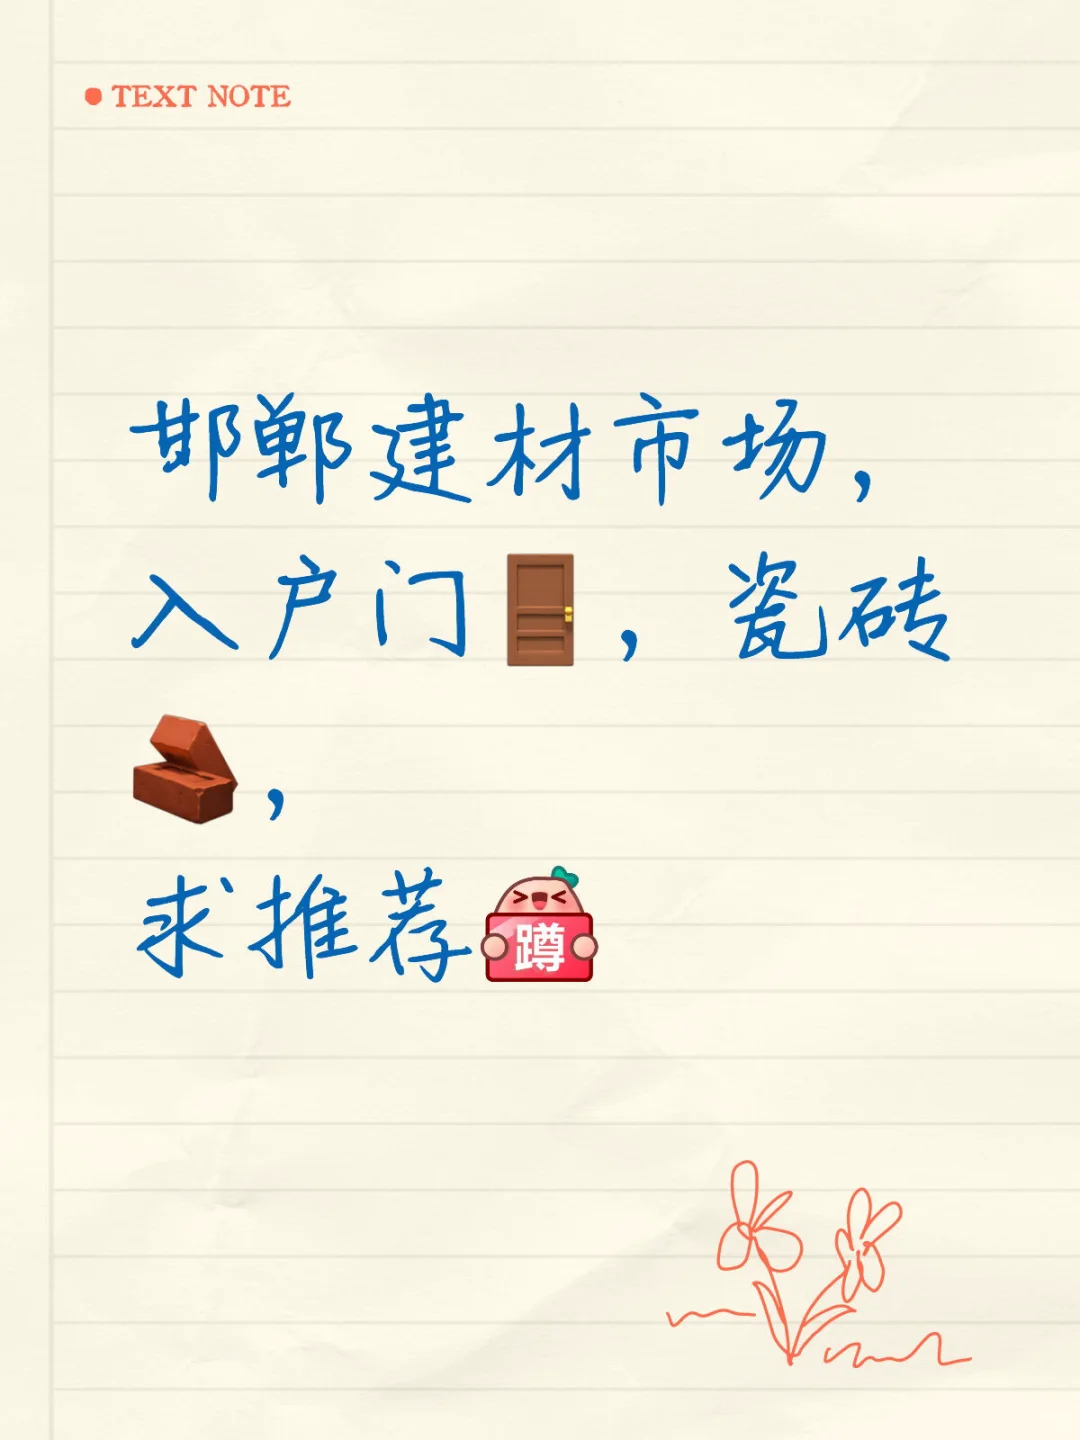 TEXT NOTE
邯郸建材市场，
入户门🚪，瓷砖
🧱，
求推荐蹲